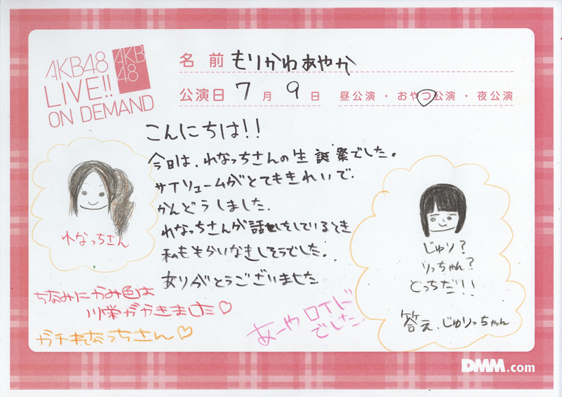 AKB48
LIVE!!
ON DEMAND
AKB
48
名前 もりかわあやか
公演日 7月9日 昼公演・おやつ公演・夜公演
こんにちは!!
今日は、れなっちさんの生誕祭でした。
サイリュームがとてもきれいで
かんどうしました。
れなっちさんが話をしているとき
私ももらいなきしそうでした。
ありがとうございました
れなっちさん
ちなみにかみ色は
川栄がかきました♡
ガチれなっちさん♡
あーやロイド
でした
じゅり?
りっちゃん?
どっちだ!!
答え、じゅりっちゃん
DMM.com